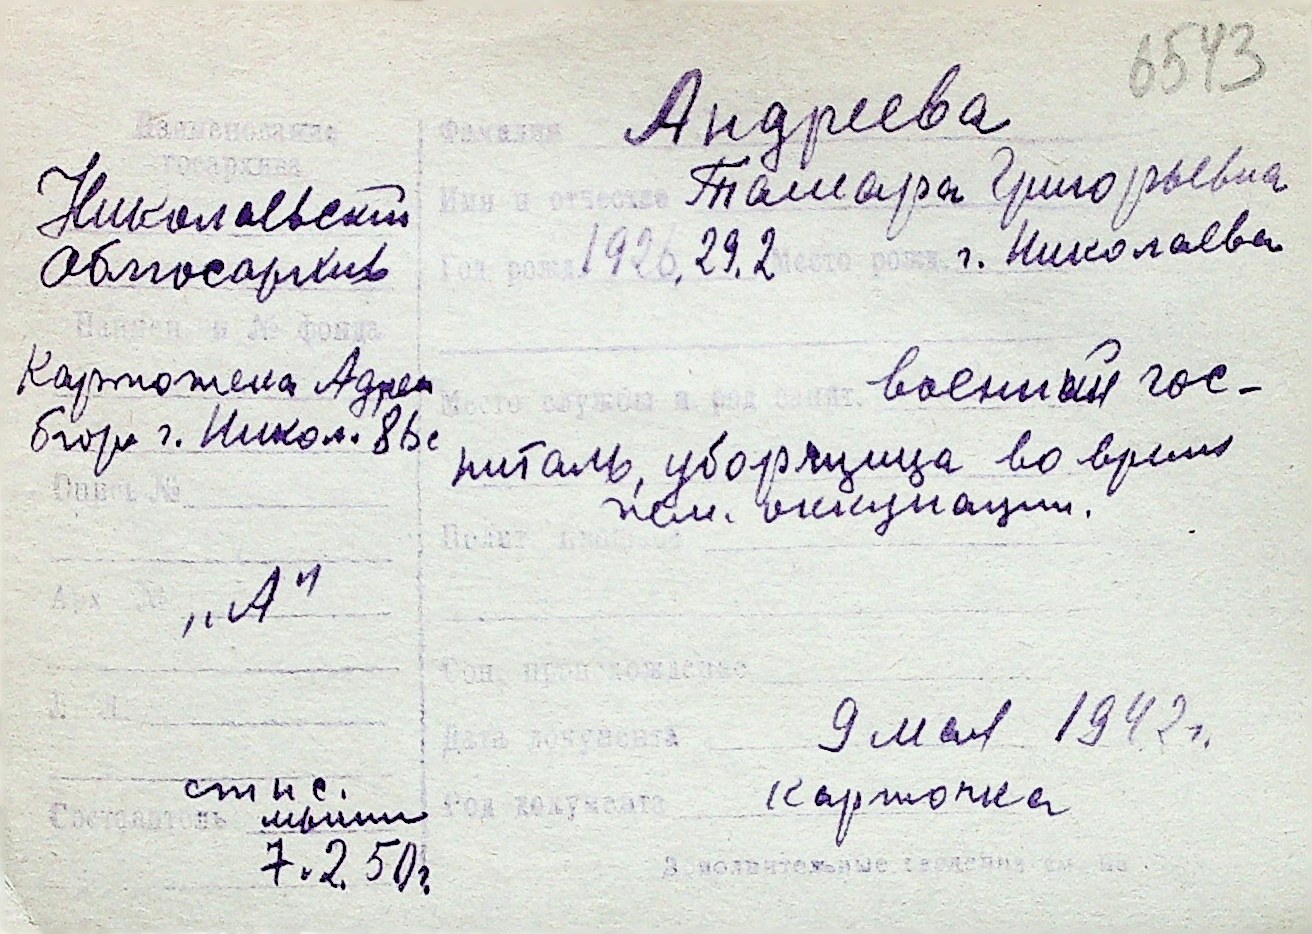 6543
Наименование
госархива
Николаевский
Облгосархив
Наимен. и № фонда
Картотека Адрес
бюро г. Никол.
Опись №
Арх №
„А"
Л. Л.
Составитель
ст н с.
7.2.50г.
Фамилия Андреева
Имя и отчество Тамара Григорьевна
Год рожд. 1926, 29.2 Место рожд. г. Николаева
Место службы и род занят. военный гос-
питаль, уборщица во время
нем. оккупации.
Полит
Соц. происхождение
Дата документа 9 мая 1942 г.
Род документа карточка
Дополнительные сведения см на